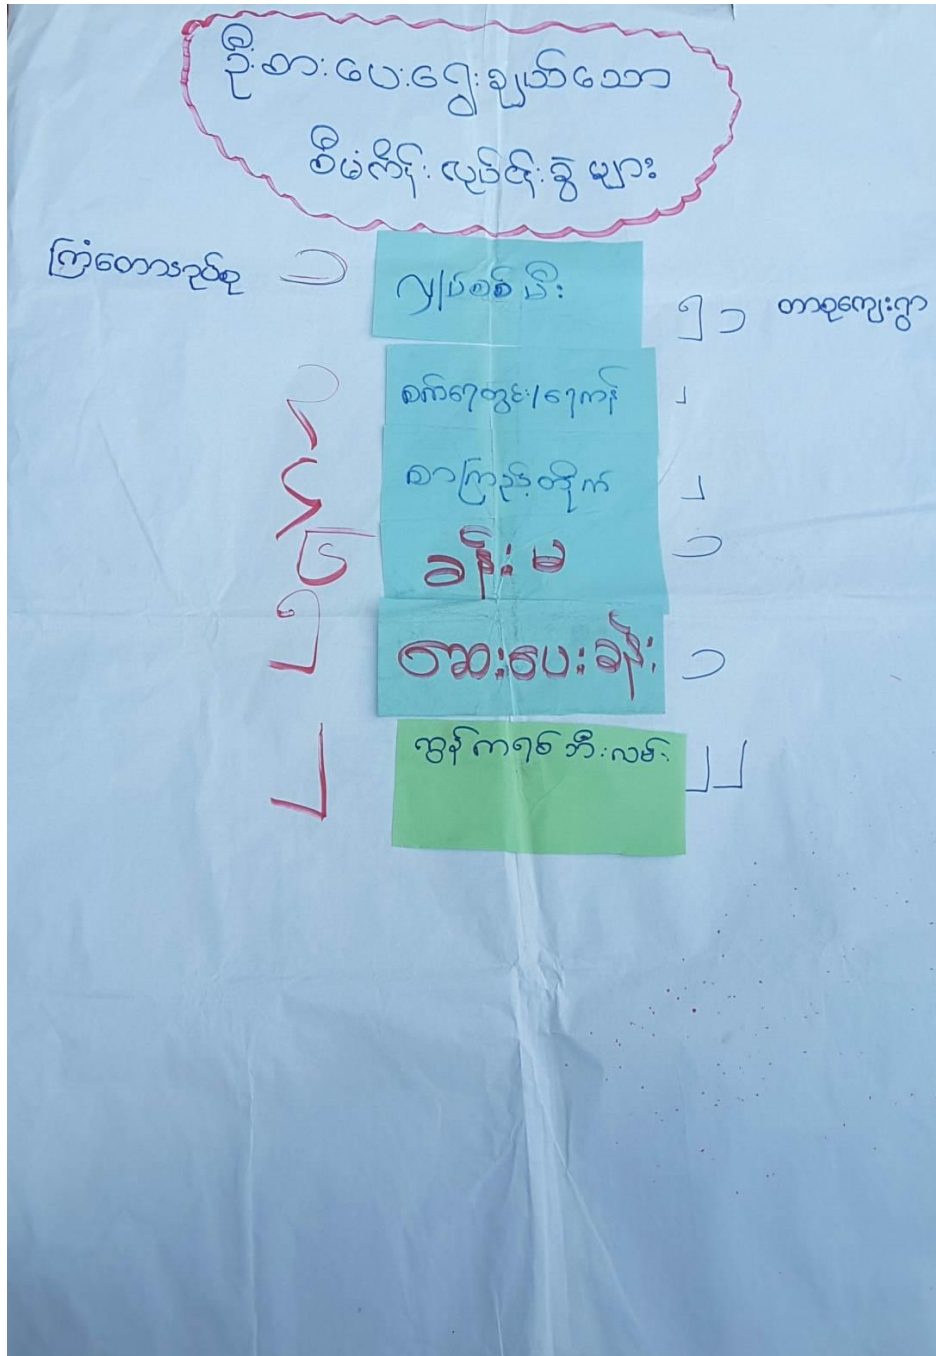 ဦးစားပေးရွေးချယ်သော
စီမံကိန်းလုပ်ငန်းခွဲများ
ကြံတောအုပ်စု ၁ လျှပ်စစ်မီး ၅၁ တာစုကျေးရွာ
၃ စက်ရေတွင်း/ရေကန် ၂
၄ စာကြည့်တိုက် ၂
၆ ခန်းမ ၁
၅ ဆေးပေးခန်း ၁
၂ ကွန်ကရစ်ဘီးလမ်း ၂၂